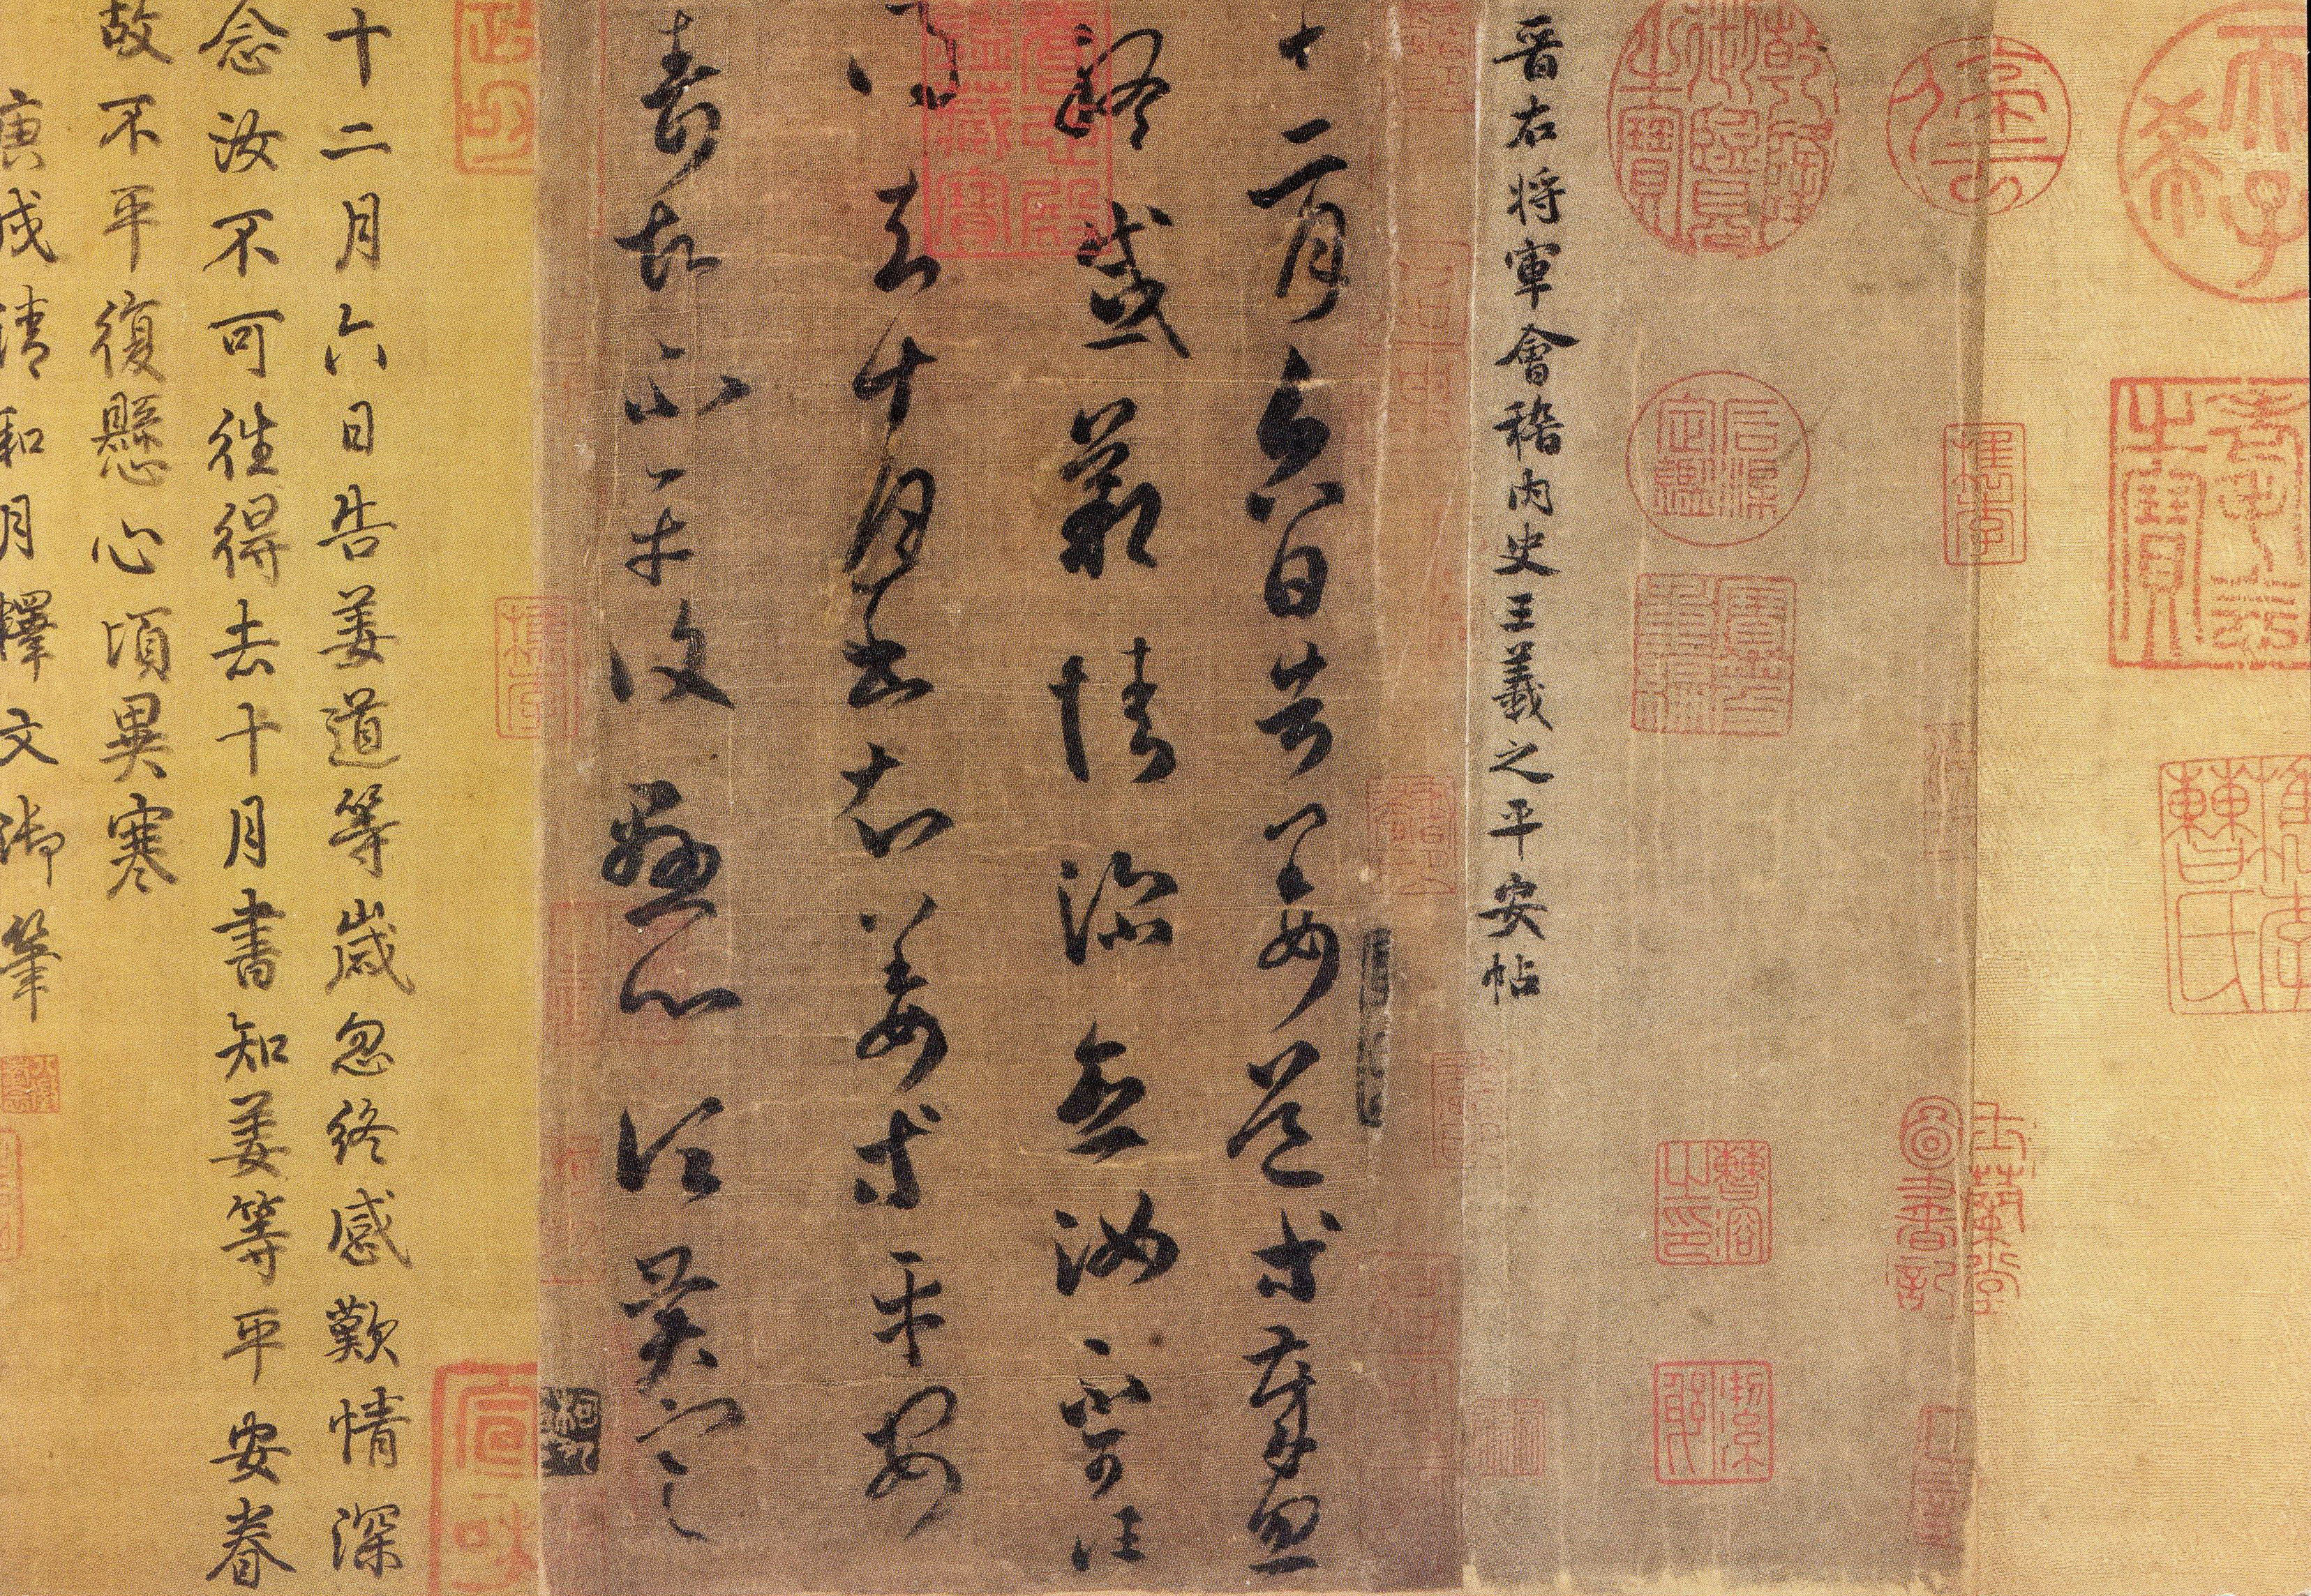 乾隆御覽之寶
石渠定鑑
寶笈重編
晉右将軍會稽内史王羲之平安帖
養心殿鑑藏寶
十二月六日告姜道等歲忽
終感歎情深念汝不可往
得去十月書知姜等平安
眷故不平復懸心頃異寒
十二月六日告姜道等歲忽終感歎情深
念汝不可往得去十月書知姜等平安眷
故不平復懸心頃異寒
庚戌清和月釋文御筆